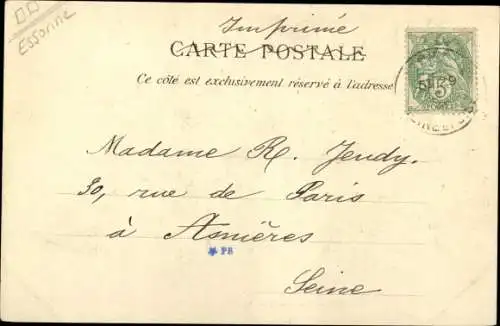 Essonne
Imprimé
CARTE POSTALE
Ce côté est exclusivement réservé à l'adresse
5
Madame R. Jendy.
30, rue de Paris
à Asnières
PB
Seine